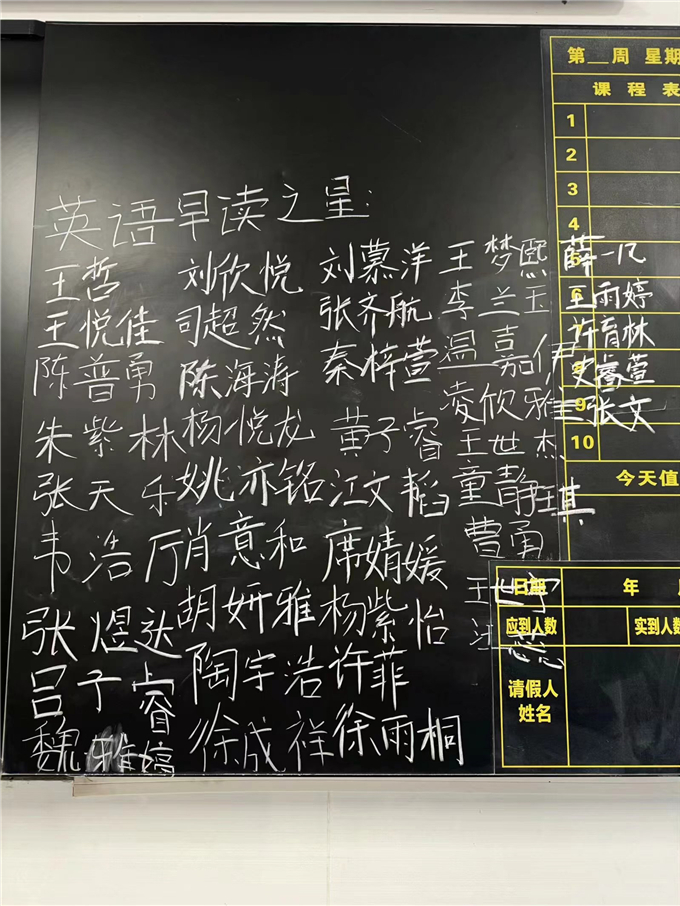 英语早读之星:
王哲 刘欣悦 刘慕洋 王梦熙 薛一凡
王悦佳 司超然 张齐航 李兰玉 王雨婷
陈普勇 陈海涛 秦梓萱 温嘉伊 许育林
朱紫林 杨悦龙 黄子睿 凌欣雅 史睿萱
张天乐 姚亦铭 江文韬 王世杰 张文
韦浩厅 肖意和 席婧媛 童静琪
张煜达 胡妍雅 杨紫怡 曹勇
吕子睿 陶宇浩 许菲
魏雅婷 徐成祥 徐雨桐
第__周 星期
课程表
1
2
3
4
5
6
7
8
9
10
今天值
日期 年
应到人数 实到人数
请假人
姓名